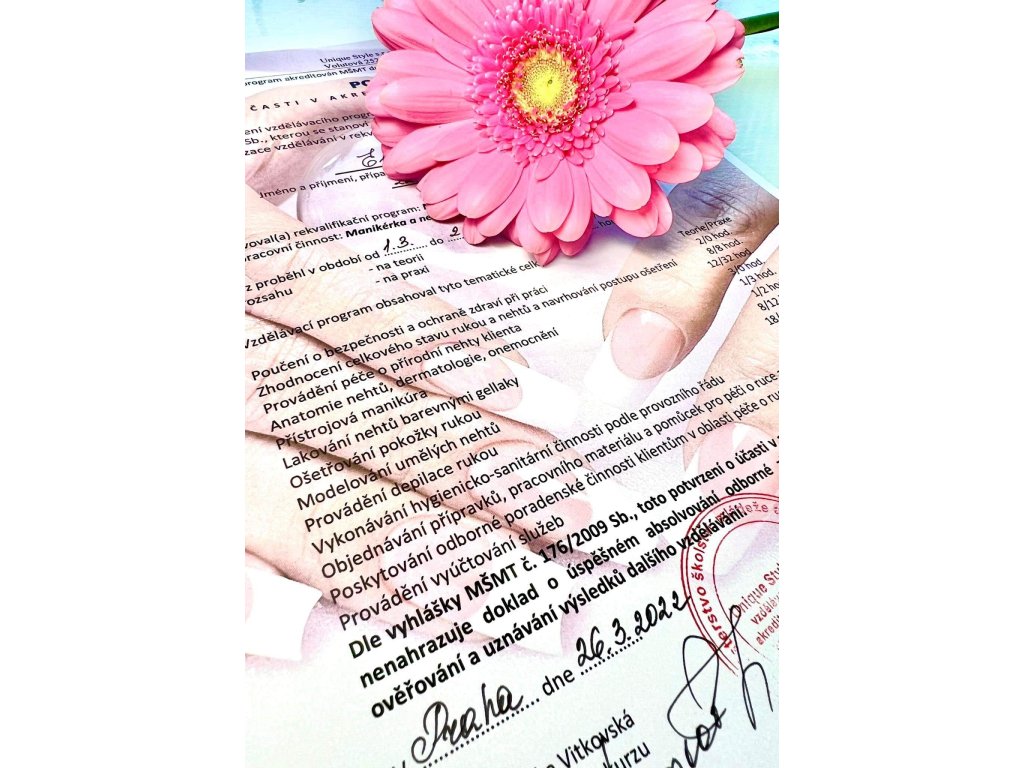 Unique Style s.
Volutová 252
program akreditován MŠMT d
PO
ČASTI V AKRE
ení vzdělávacího prog
Sb., kterou se stanoví
zace vzdělávání v rekv
méno a příjmení, přípa
voval(a) rekvalifikační program:
pracovní činnost: Manikérka a ne
z proběhl v období od 1.3. do 2 hou
ozsahu - na teorii
- na praxi
Vzdělávací program obsahoval tyto tematické celk
Teorie/Praxe
Poučení o bezpečnosti a ochraně zdraví při práci 2/0 hod.
Zhodnocení celkového stavu rukou a nehtů a navrhování postupu ošetření 8/8 hod.
Provádění péče o přírodní nehty klienta 12/32 hod.
Anatomie nehtů, dermatologie, onemocnění 3/0 hod.
Přístrojová manikúra 1/3 hod.
Lakování nehtů barevnými gellaky 1/2 h
Ošetřování pokožky rukou 8/12
Modelování umělých nehtů 18/
Provádění depilace rukou
Vykonávání hygienicko-sanitární činnosti podle provozního řádu
Objednávání přípravků, pracovního materiálu a pomůcek pro péči o ruce
Poskytování odborné poradenské činnosti klientům v oblasti péče o ru
Provádění vyúčtování služeb
Dle vyhlášky MŠMT č. 176/2009 Sb., toto potvrzení o účasti v
nenahrazuje doklad o úspěšném absolvování odborné
ověřování a uznávání výsledků dalšího vzdělávání.
Praha dne 26.3.2022
Vitkovská
kurzu
terstvo školst mládeže
Unique Sty
vzděláv
akredit